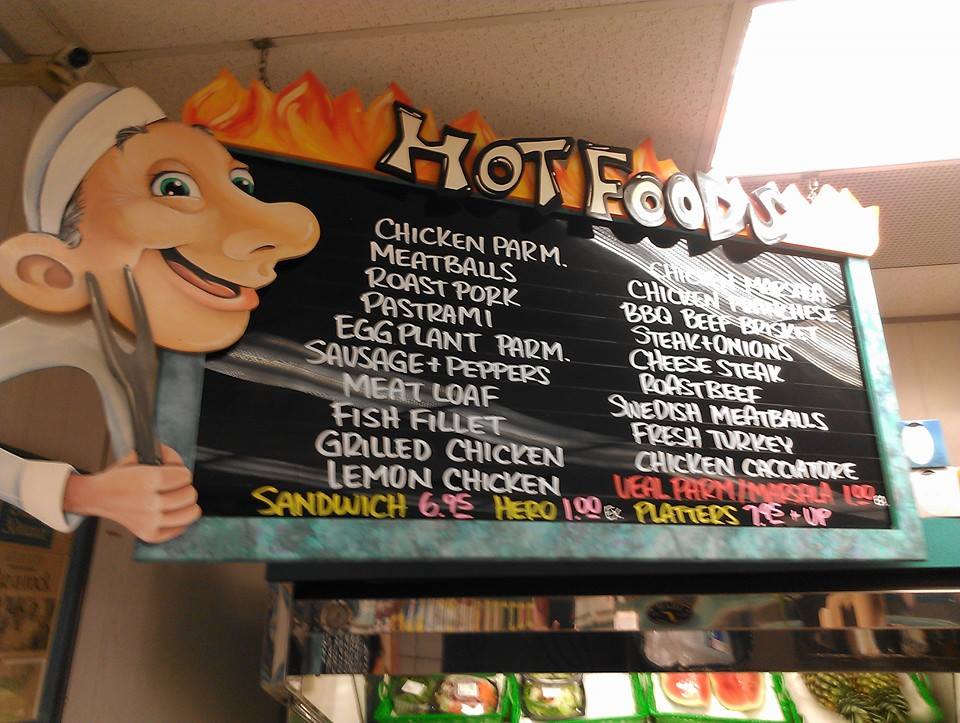 HOT FOODS
CHICKEN PARM.
MEATBALLS
ROAST PORK
PASTRAMI
EGG PLANT PARM.
SAUSAGE + PEPPERS
MEAT LOAF
FISH FILLET
GRILLED CHICKEN
LEMON CHICKEN
CHICKEN MARSALA
CHICKEN FRANCHESE
BBQ BEEF BRISKET
STEAK + ONIONS
CHEESE STEAK
ROAST BEEF
SWEDISH MEATBALLS
FRESH TURKEY
CHICKEN CACCIATORE
VEAL PARM/MARSALA 1.00 EX.
SANDWICH 6.95 HERO 1.00 EX. PLATTERS 7.95 + UP